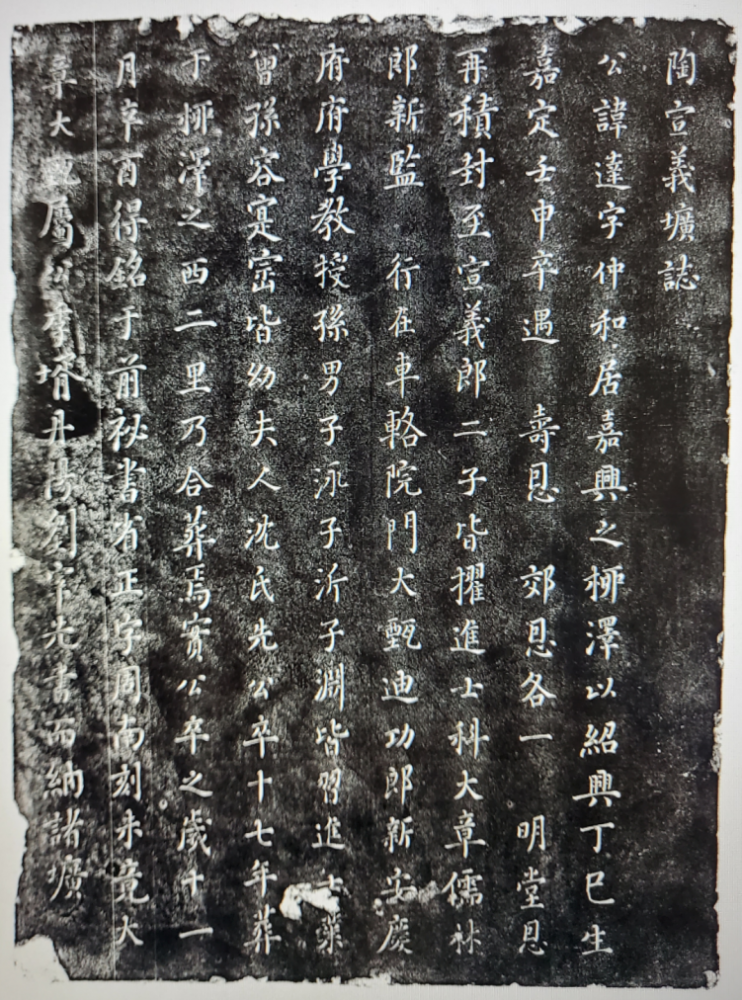 陶宣義壙誌
公諱達字仲和居嘉興之柳澤以紹興丁巳生
嘉定壬申卒遇 壽恩 郊恩各一 明堂恩
再積封至宣義郎二子皆擢進士科大章儒林
郎新監 行在車輅院門大甄迪功郎新安慶
府府學教授孫男子泳子沂子淵皆習進士業
曾孫容寔宻皆幼夫人沈氏先公卒十七年葬
于柳澤之西二里乃合葬焉實公卒之歲十一
月辛酉得銘于前祕書省正字周南刻未竟大
章大甄屬公季壻丹陽劉宰先書而納諸壙